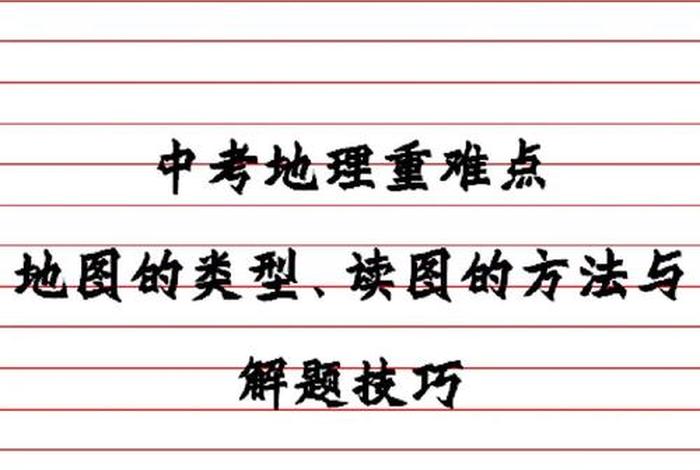 中考地理重难点
地图的类型、读图的方法与
解题技巧